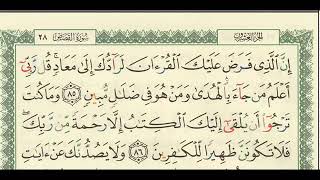 الجزء العشرون سورة القصص ٢٨
إِنَّ ٱلَّذِى فَرَضَ عَلَيْكَ ٱلْقُرْءَانَ لَرَآدُّكَ إِلَىٰ مَعَادٍ ۚ قُل رَّبِّىٓ
أَعْلَمُ مَن جَآءَ بِٱلْهُدَىٰ وَمَنْ هُوَ فِى ضَلَٰلٍ مُّبِينٍ ٨٥ وَمَا كُنتَ
تَرْجُوٓا۟ أَن يُلْقَىٰٓ إِلَيْكَ ٱلْكِتَٰبُ إِلَّا رَحْمَةً مِّن رَّبِّكَ ۖ
فَلَا تَكُونَنَّ ظَهِيرًا لِّلْكَٰفِرِينَ ٨٦ وَلَا يَصُدُّنَّكَ عَنْ ءَايَٰتِ